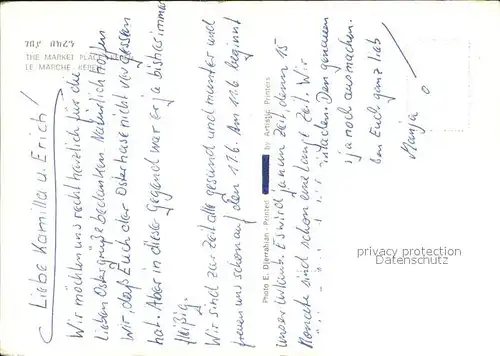 Liebe Kamilla u. Erich!
Wir möchten uns recht herzlich für die
lieben Ostergrüße bedanken. Natürlich hoffen
wir, daß Euch der Osterhase nicht vergessen
hat. Aber in dieser Gegend war er ja bisher immer
fleißig.
Wir sind zur Zeit alle gesund und munter und
freuen uns schon auf den 17.6. Am 17.6 beginnt
unser Urlaub. Es wird ja nun Zeit, denn 15
Monate sind schon eine lange Zeit. Wir
einladen. Den genauen
ja noch ausmachen.
ben Euch ganz lieb
THE MARKET PLACE
LE MARCHE
Photo E. Djerrahian - Printed by Artistic Printers
privacy protection
Datenschutz